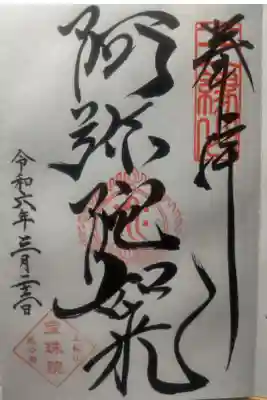 奉拝
阿弥陀如来
令和六年三月二十三日
宝珠院